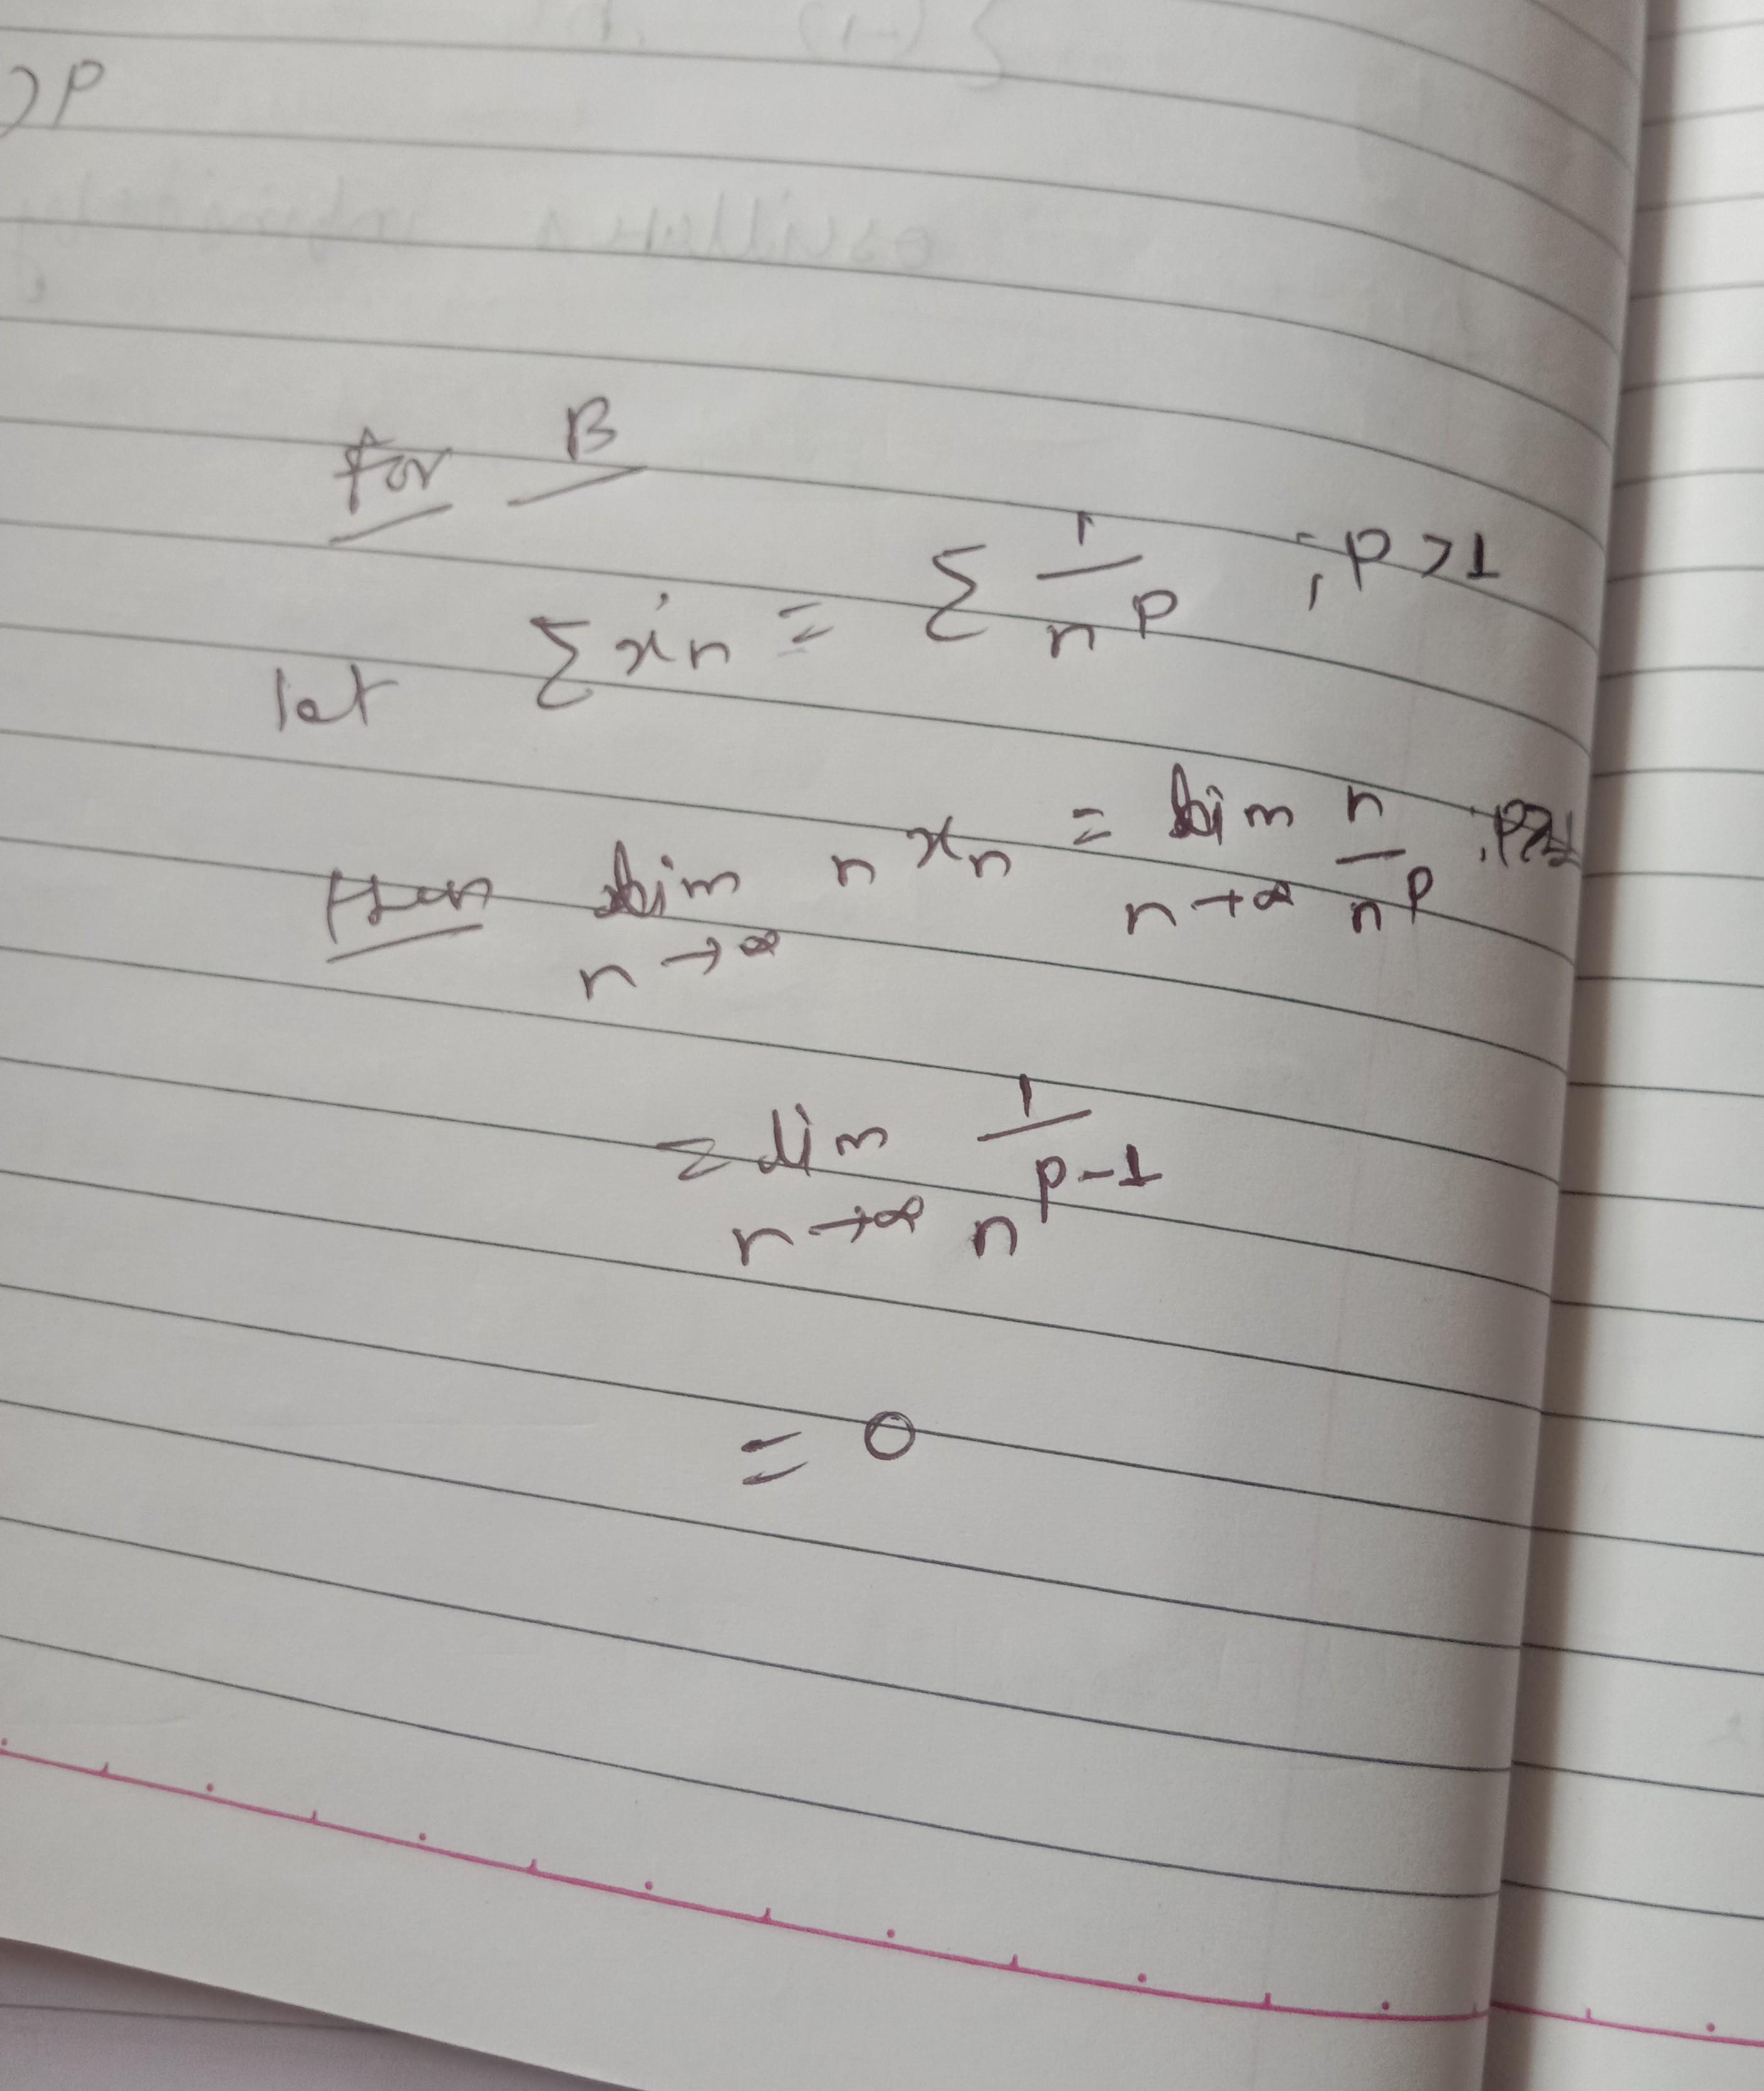 )P
for B
let Σxn = Σ 1/n^p ; p>1
then lim n→∞ n xn = lim n→∞ n/n^p
= lim n→∞ 1/n^p-1
= 0